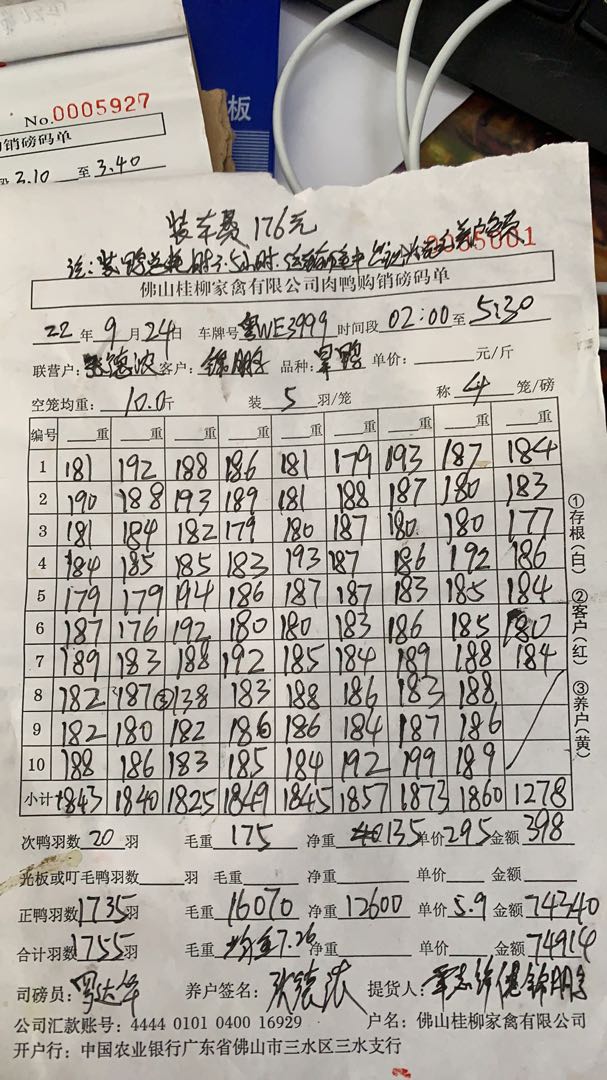 板
No.0005927
销磅码单
3.10 至 3.40
装车费 176元
0005001
佛山桂柳家禽有限公司肉鸭购销磅码单
22 年 9 月 24 日 车牌号 粤WE3999 时间段 02:00 至 5:30
联营户: 客户: 锦鹏 品种: 单价: 元/斤
空笼均重: 10.0 斤 装 5 羽/笼 称 4 笼/磅
编号 重 重 重 重 重 重 重 重 重
1 181 192 188 186 181 179 193 187 184
2 190 188 193 189 181 188 187 180 183
3 181 184 182 179 180 187 180 180 177
4 184 185 185 183 193 187 186 192 186
5 179 179 194 186 187 187 183 185 184
6 187 176 192 180 180 183 186 185 180
7 189 183 188 192 185 184 189 188 184
8 182 187 ③138 183 188 186 183 188
9 182 180 182 186 186 184 187 186
10 188 186 183 185 184 192 199 189
小计 1843 1840 1825 1849 1845 1857 1873 1860 1278
次鸭羽数 20 羽 毛重 175 净重 135 单价 2.95 金额 398
光板或叮毛鸭羽数 羽 毛重 净重 单价 金额
正鸭羽数 1735 羽 毛重 16070 净重 12600 单价 5.9 金额 74340
合计羽数 1755 羽 毛重 均重7.26 净重 单价 金额 74914
司磅员: 养户签名: 提货人:
公司汇款账号: 4444 0101 0400 16929 户名: 佛山桂柳家禽有限公司
开户行: 中国农业银行广东省佛山市三水区三水支行
①存根(白) ②客户(红) ③养户(黄)